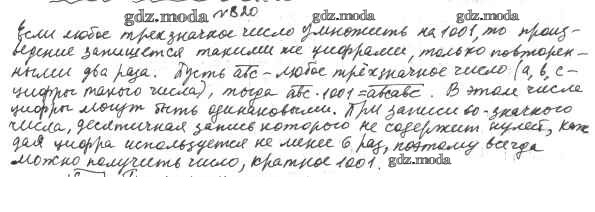 gdz.moda №820 gdz.moda gdz.moda
Если любое трехзначное число умножить на 1001, то произ-
ведение запишется такими же цифрами, только повторен-
ными два раза. Пусть abc – любое трёхзначное число (a, b, c –
gdz.moda gdz.moda gdz.moda
цифры такого числа), тогда abc · 1001 = abcabc. В этом числе
цифры могут быть одинаковыми. При записи 60-значного
числа, десятичная запись которого не содержит нулей, каж
дая цифра используется не менее 6 раз, поэтому всегда
можно получить число, кратное 1001.
gdz.moda gdz.moda gdz.moda